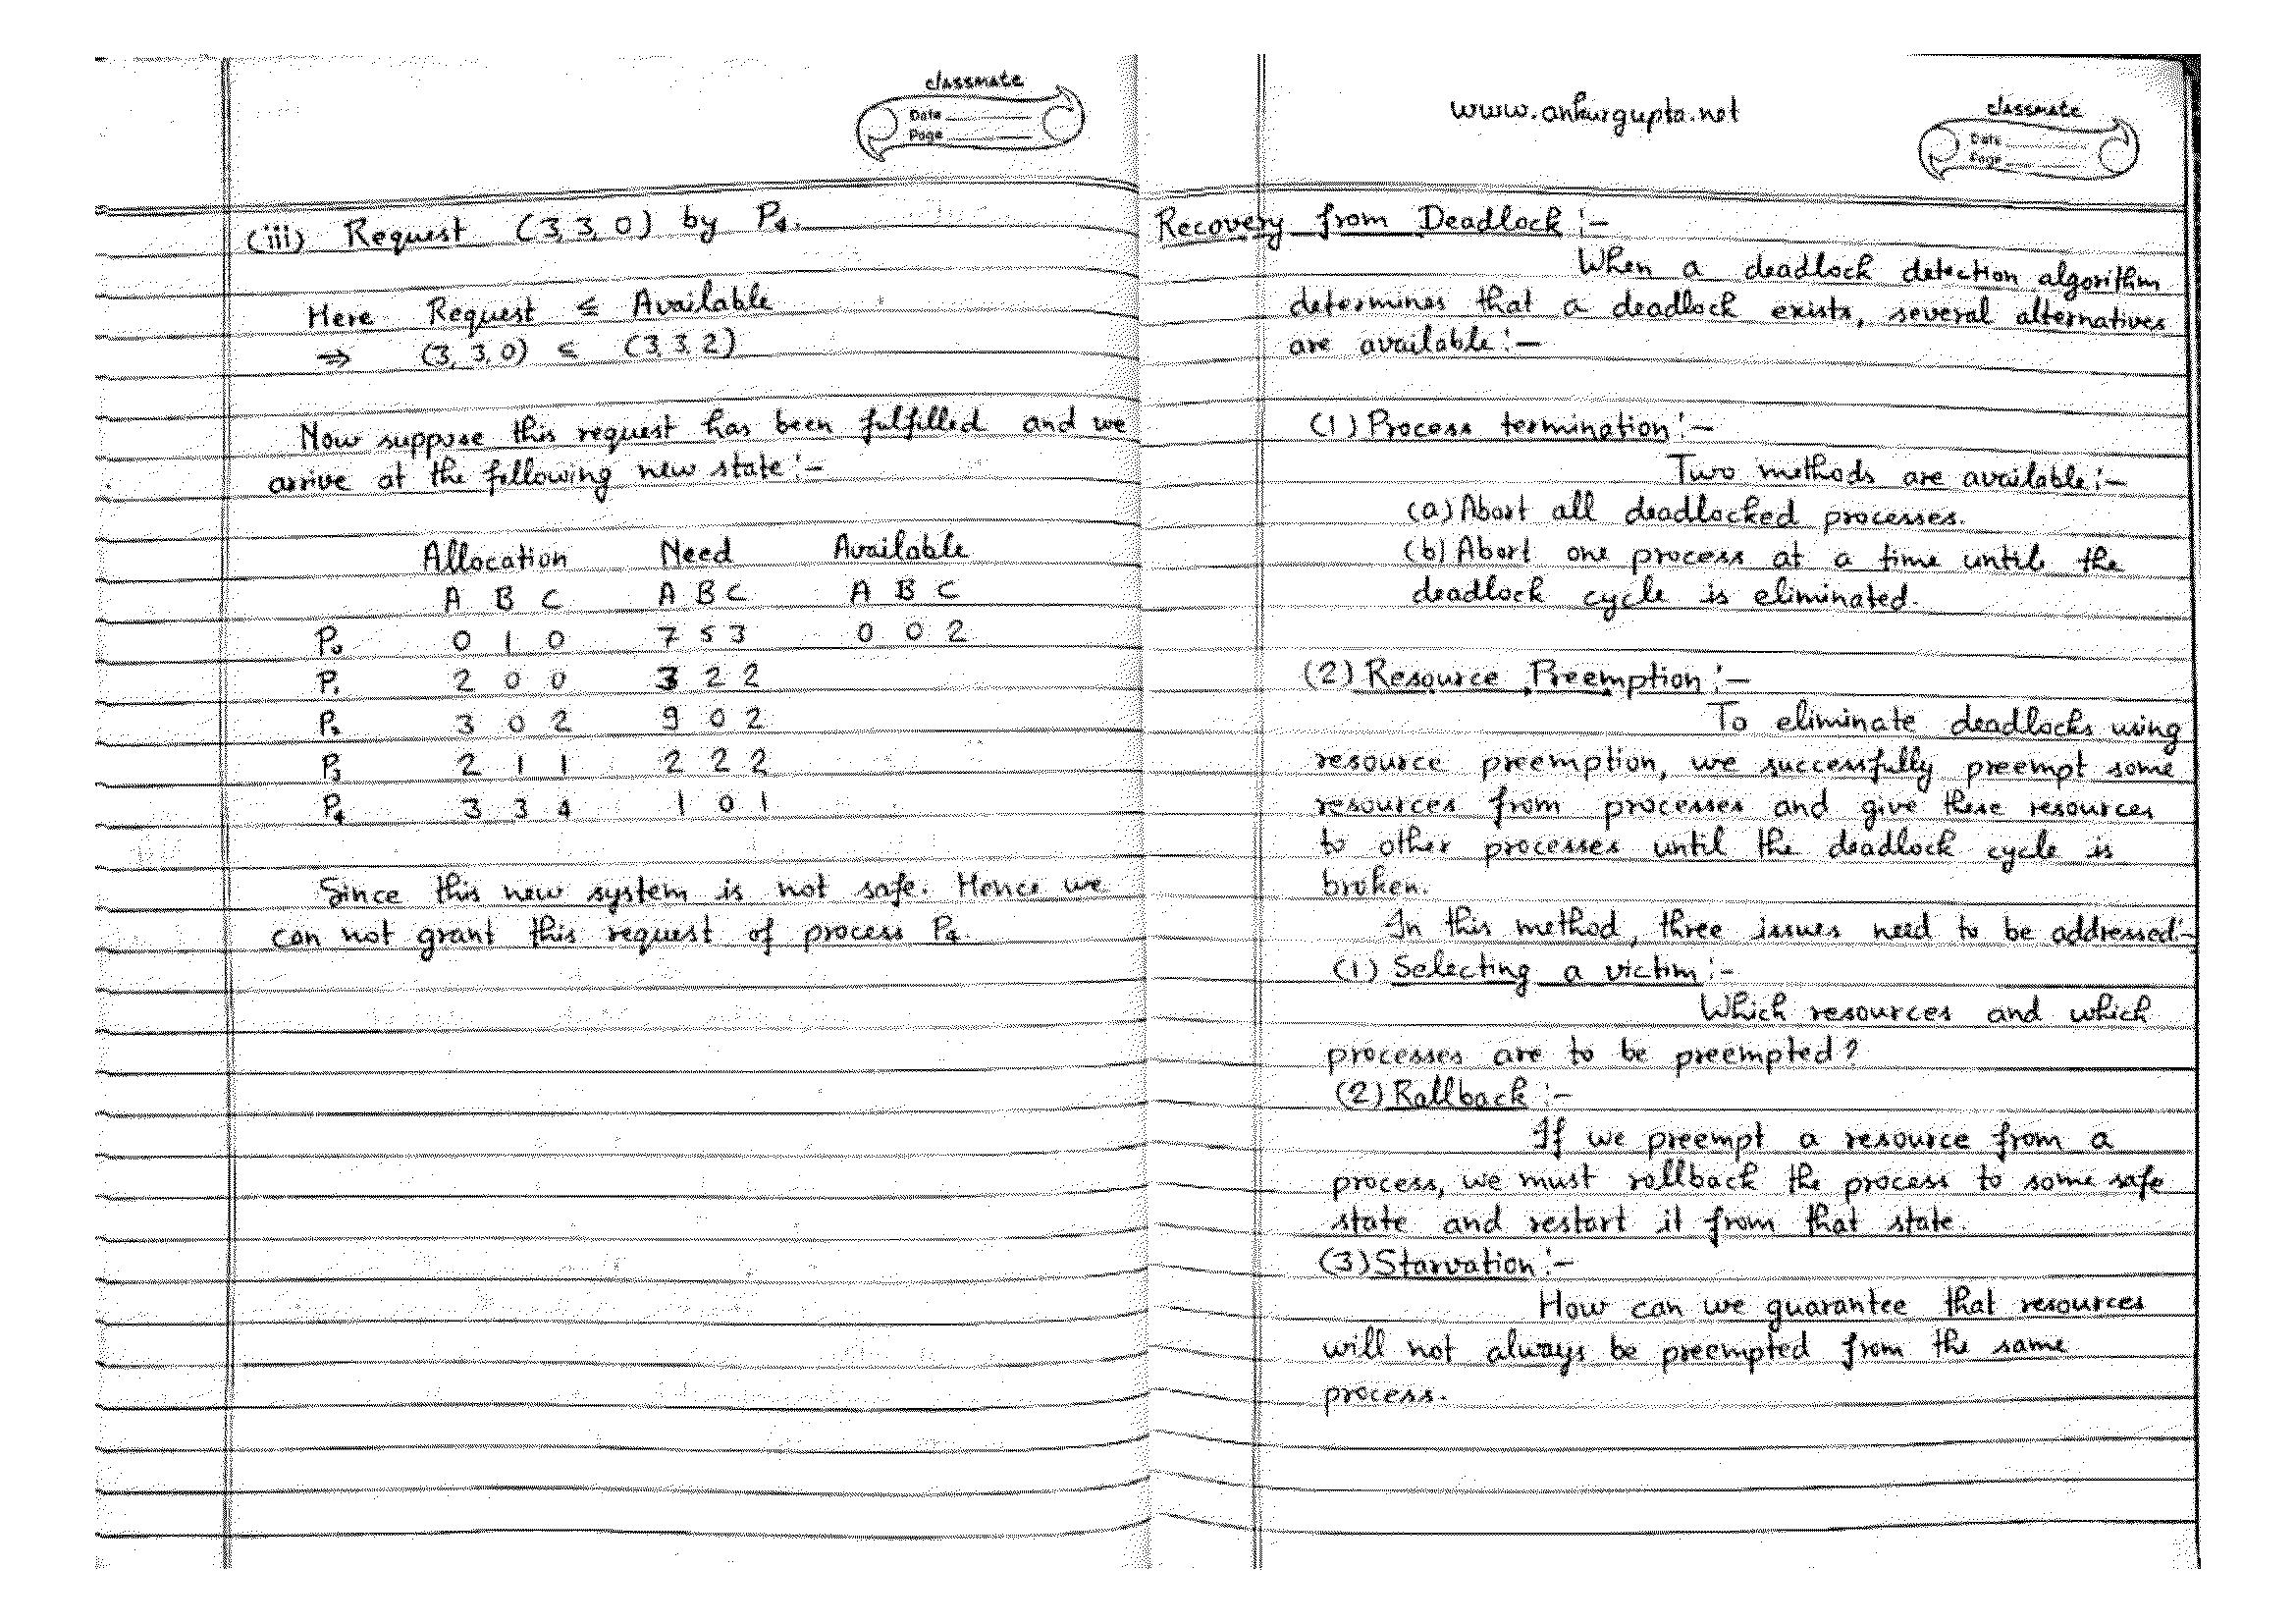 classmate
Date
Page
(iii) Request (3,3,0) by P4.
Here Request ≤ Available
⇒ (3,3,0) ≤ (3,3,2)
Now suppose this request has been fulfilled and we
arrive at the following new state:-
Allocation Need Available
A B C A B C A B C
P0 0 1 0 7 5 3 0 0 2
P1 2 0 0 3 2 2
P2 3 0 2 9 0 2
P3 2 1 1 2 2 2
P4 3 3 4 1 0 1
Since this new system is not safe. Hence we
can not grant this request of process P4.
www.ankurgupta.net
classmate
Date
Page
Recovery from Deadlock:-
When a deadlock detection algorithm
determines that a deadlock exists, several alternatives
are available:-
(1) Process termination:-
Two methods are available:-
(a) Abort all deadlocked processes.
(b) Abort one process at a time until the
deadlock cycle is eliminated.
(2) Resource Preemption:-
To eliminate deadlocks using
resource preemption, we successfully preempt some
resources from processes and give these resources
to other processes until the deadlock cycle is
broken.
In this method, three issues need to be addressed:-
(1) Selecting a victim:-
Which resources and which
processes are to be preempted?
(2) Rollback:-
If we preempt a resource from a
process, we must rollback the process to some safe
state and restart it from that state.
(3) Starvation:-
How can we guarantee that resources
will not always be preempted from the same
process.